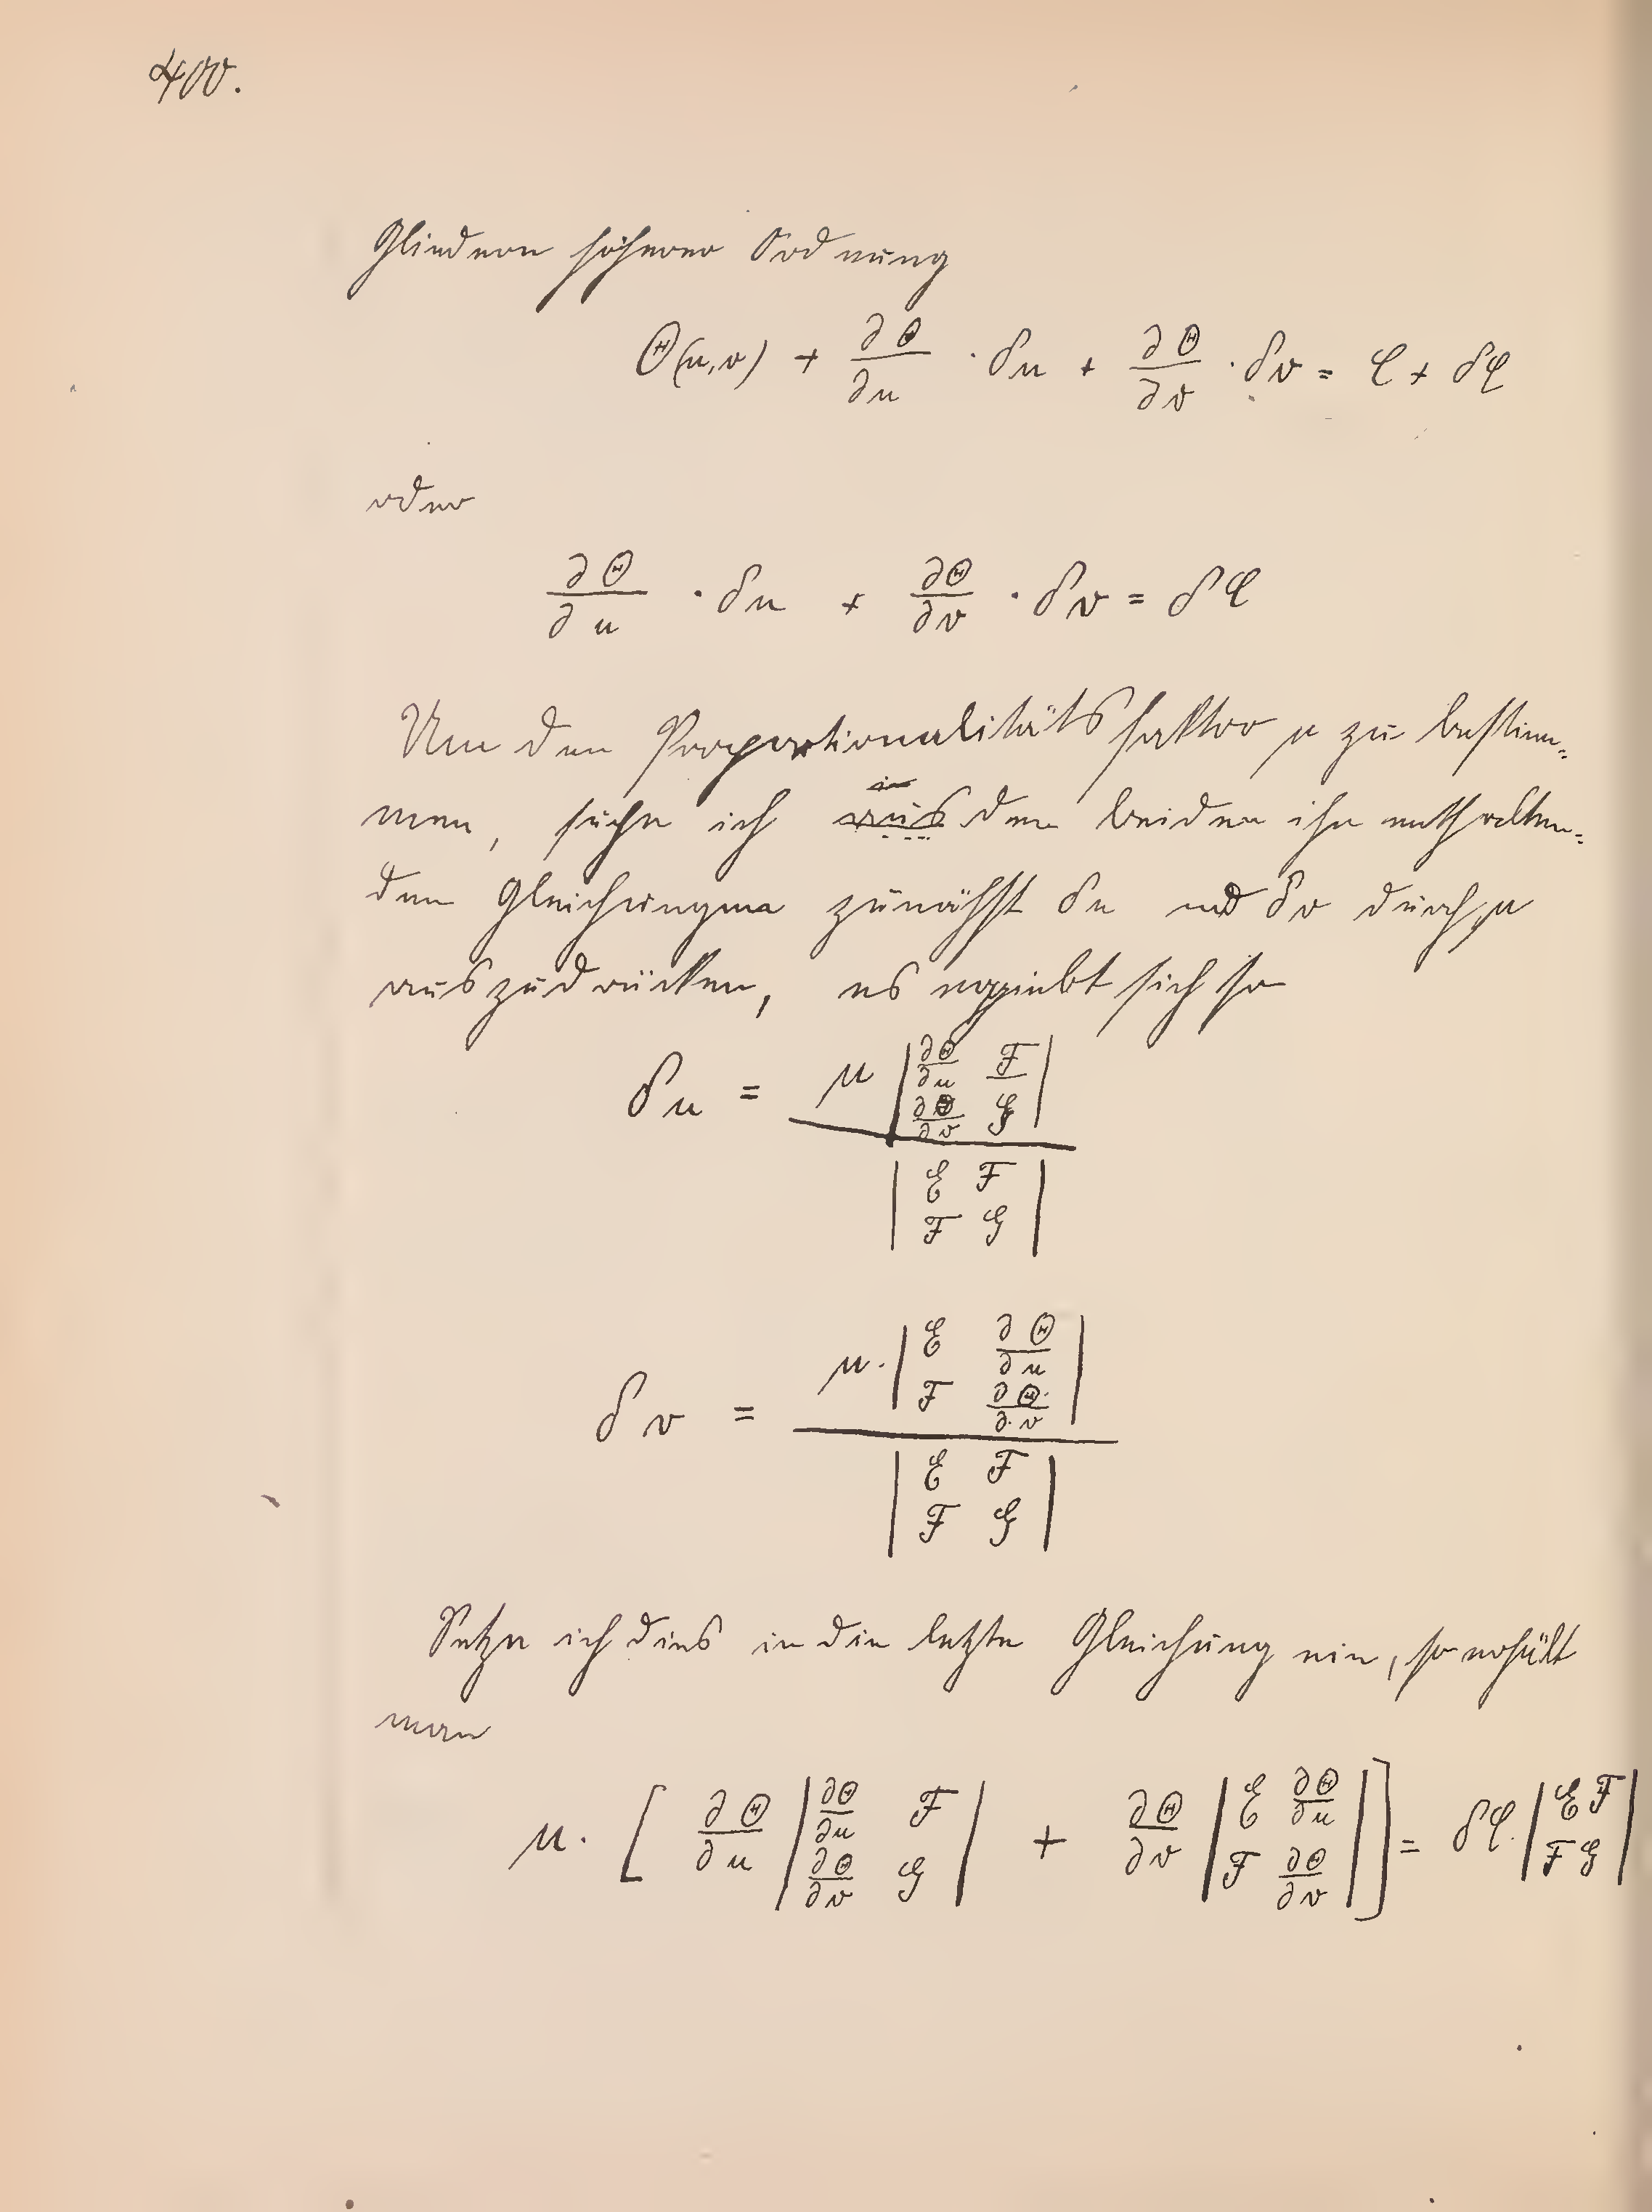 400.
Gliedern höherer Ordnung
Θ(u,v) + ∂Θ/∂u · δu + ∂Θ/∂v · δv = C + δC
oder
∂Θ/∂u · δu + ∂Θ/∂v · δv = δC
Um den Proportionalitätsfaktor μ zu bestim=
in
men, suche ich aus den beiden ihn enthalten=
den Gleichungen zunächst δu und δv durch μ
auszudrücken, es ergiebt sich so
δu = μ |∂Θ/∂u F; ∂Θ/∂v G| / |E F; F G|
δv = μ · |E ∂Θ/∂u; F ∂Θ/∂v| / |E F; F G|
Setze ich dies in die letzte Gleichung ein, so erhält
man
μ · [∂Θ/∂u |∂Θ/∂u F; ∂Θ/∂v G| + ∂Θ/∂v |E ∂Θ/∂u; F ∂Θ/∂v|] = δC · |E F; F G|